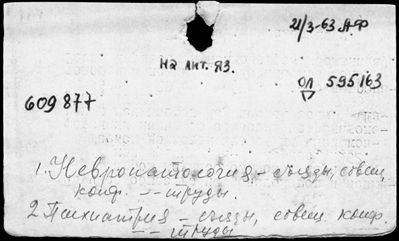 21/3-63 АФ
на лит. яз.
ОЛ 595163
609877
1. Невропатология, – съезды, совещ,
конф. -- труды.
2 Психиатрия – съезды, совещ. конф.
-- труды